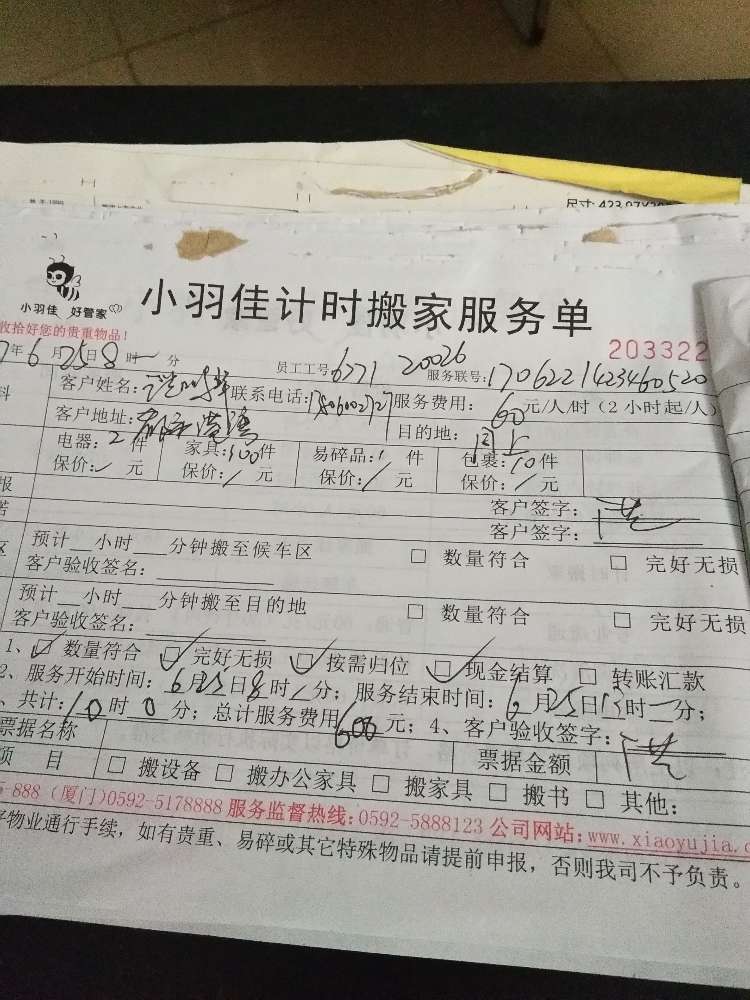 尺寸:423.97X2
小羽佳 好管家
小羽佳计时搬家服务单
收拾好您的贵重物品!
203322
年6月25日8时 分 员工工号6771 20026 服务联号:170622142346 0520
客户姓名: 联系电话: 服务费用:60元/人/时(2小时起/人)
客户地址: 目的地:同上
电器:2件 家具:100件 易碎品: 件 包裹:10件
保价:/元 保价:/元 保价:/元 保价:/元
客户签字:
客户签字:
预计 小时 分钟搬至候车区 □ 数量符合 □ 完好无损
客户验收签名:
预计 小时 分钟搬至目的地 □ 数量符合 □ 完好无损
客户验收签名:
1、☑ 数量符合 ☑ 完好无损 ☑ 按需归位 ☑ 现金结算 □ 转账汇款
2、服务开始时间:6月25日8时 分;服务结束时间:6月25日 时 分;
、共计:10时0分;总计服务费用600元;4、客户验收签字:
票据名称 票据金额
项 目 □ 搬设备 □ 搬办公家具 □ 搬家具 □ 搬书 □ 其他:
-888 (厦门)0592-5178888 服务监督热线:0592-5888123 公司网站:www.xiaoyujia.c
物业通行手续,如有贵重、易碎或其它特殊物品请提前申报,否则我司不予负责。